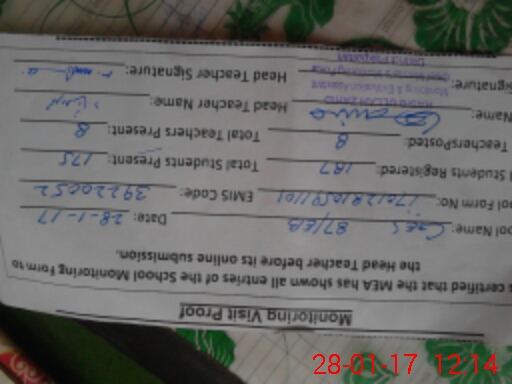 Monitoring Visit Proof
s certified that the MEA has shown all entries of the School Monitoring Form to
the Head Teacher before its online submission.
ool Name: GGES 87/EB Date: 28-1-17
ool Form No: EMIS Code: 39220052
l Students Registered: 187 Total Students Present: 175
TeachersPosted: 8 Total Teachers Present: 8
Name: Head Teacher Name:
Signature: Head Teacher Signature:
Monitoring & Evaluation Assistant
28-01-17 12:14